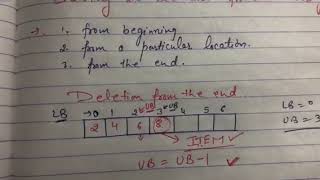 → 1. from beginning
2. from a particular location.
3. from the end.
Deletion from the end.
LB → 0 1 2 ←UB 3 ←UB 4 5 6
2 4 6 8
LB = 0
UB = 3
ITEM ✓
UB = UB - 1 ✓